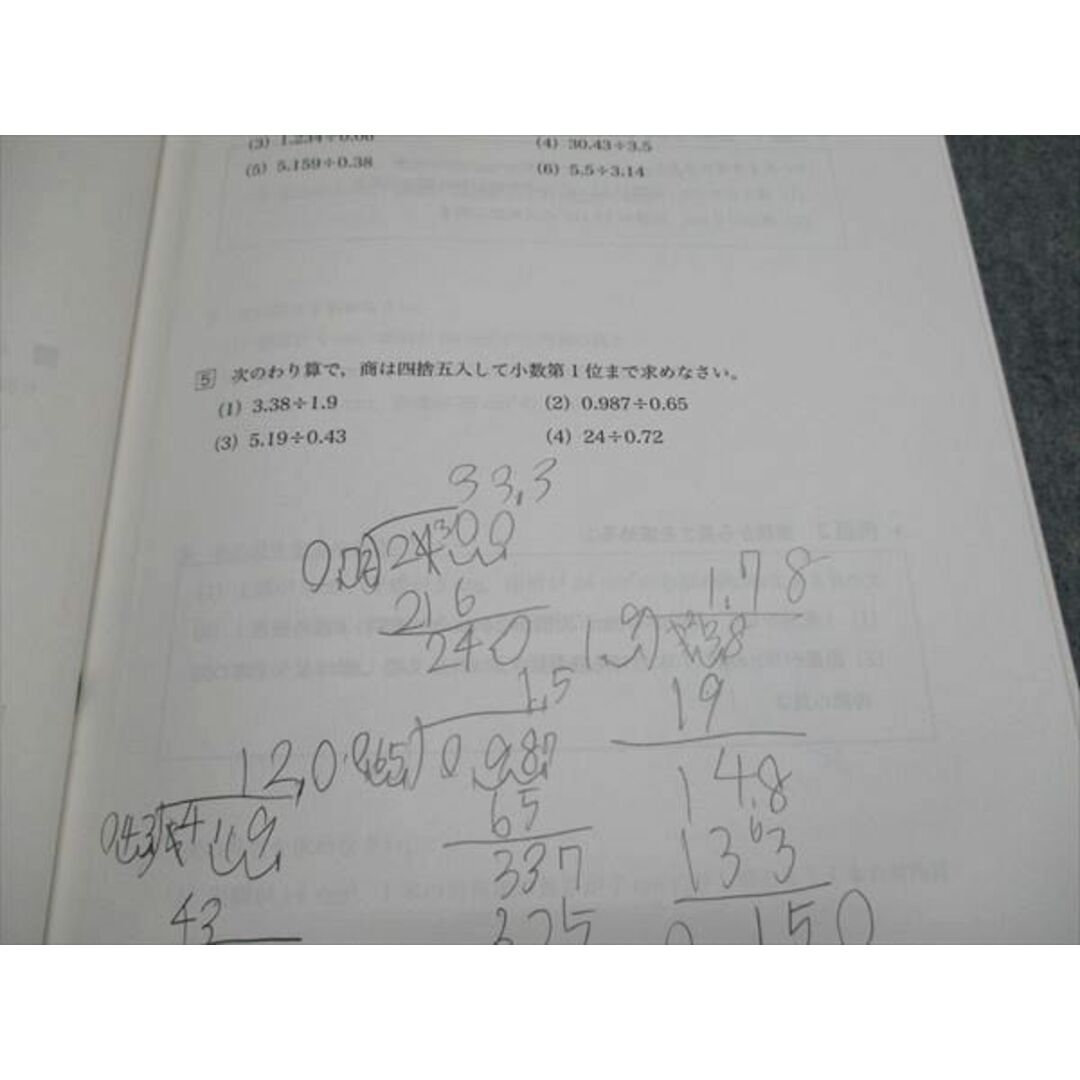 (3) 1.234÷0.06 (4) 30.43÷3.5
(5) 5.159÷0.38 (6) 5.5÷3.14
5 次のわり算で，商は四捨五入して小数第1位まで求めなさい。
(1) 3.38÷1.9 (2) 0.987÷0.65
(3) 5.19÷0.43 (4) 24÷0.72
33.3
2400
216
240
1.78
1.9
19
14.8
133
150
1.5
0.65 0.987
65
337
325
12.0
0.43
43